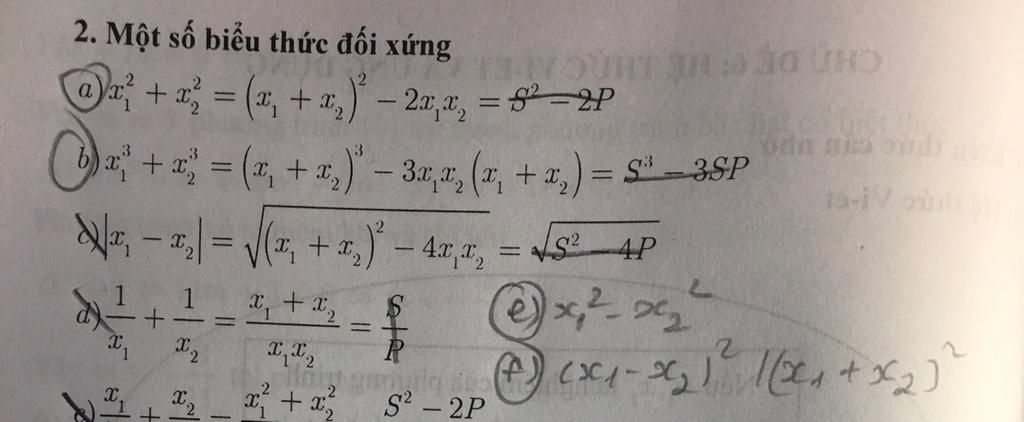 2. Một số biểu thức đối xứng
a) x₁² + x₂² = (x₁ + x₂)² − 2x₁x₂ = S² − 2P
b) x₁³ + x₂³ = (x₁ + x₂)³ − 3x₁x₂(x₁ + x₂) = S³ − 3SP
c) |x₁ − x₂| = √((x₁ + x₂)² − 4x₁x₂) = √(S² − 4P)
d) 1/x₁ + 1/x₂ = (x₁ + x₂)/(x₁x₂) = S/P
e) x₁² − x₂²
f) (x₁ − x₂)² / (x₁ + x₂)²
e) x₁ + x₂ = x₁² + x₂² S² − 2P